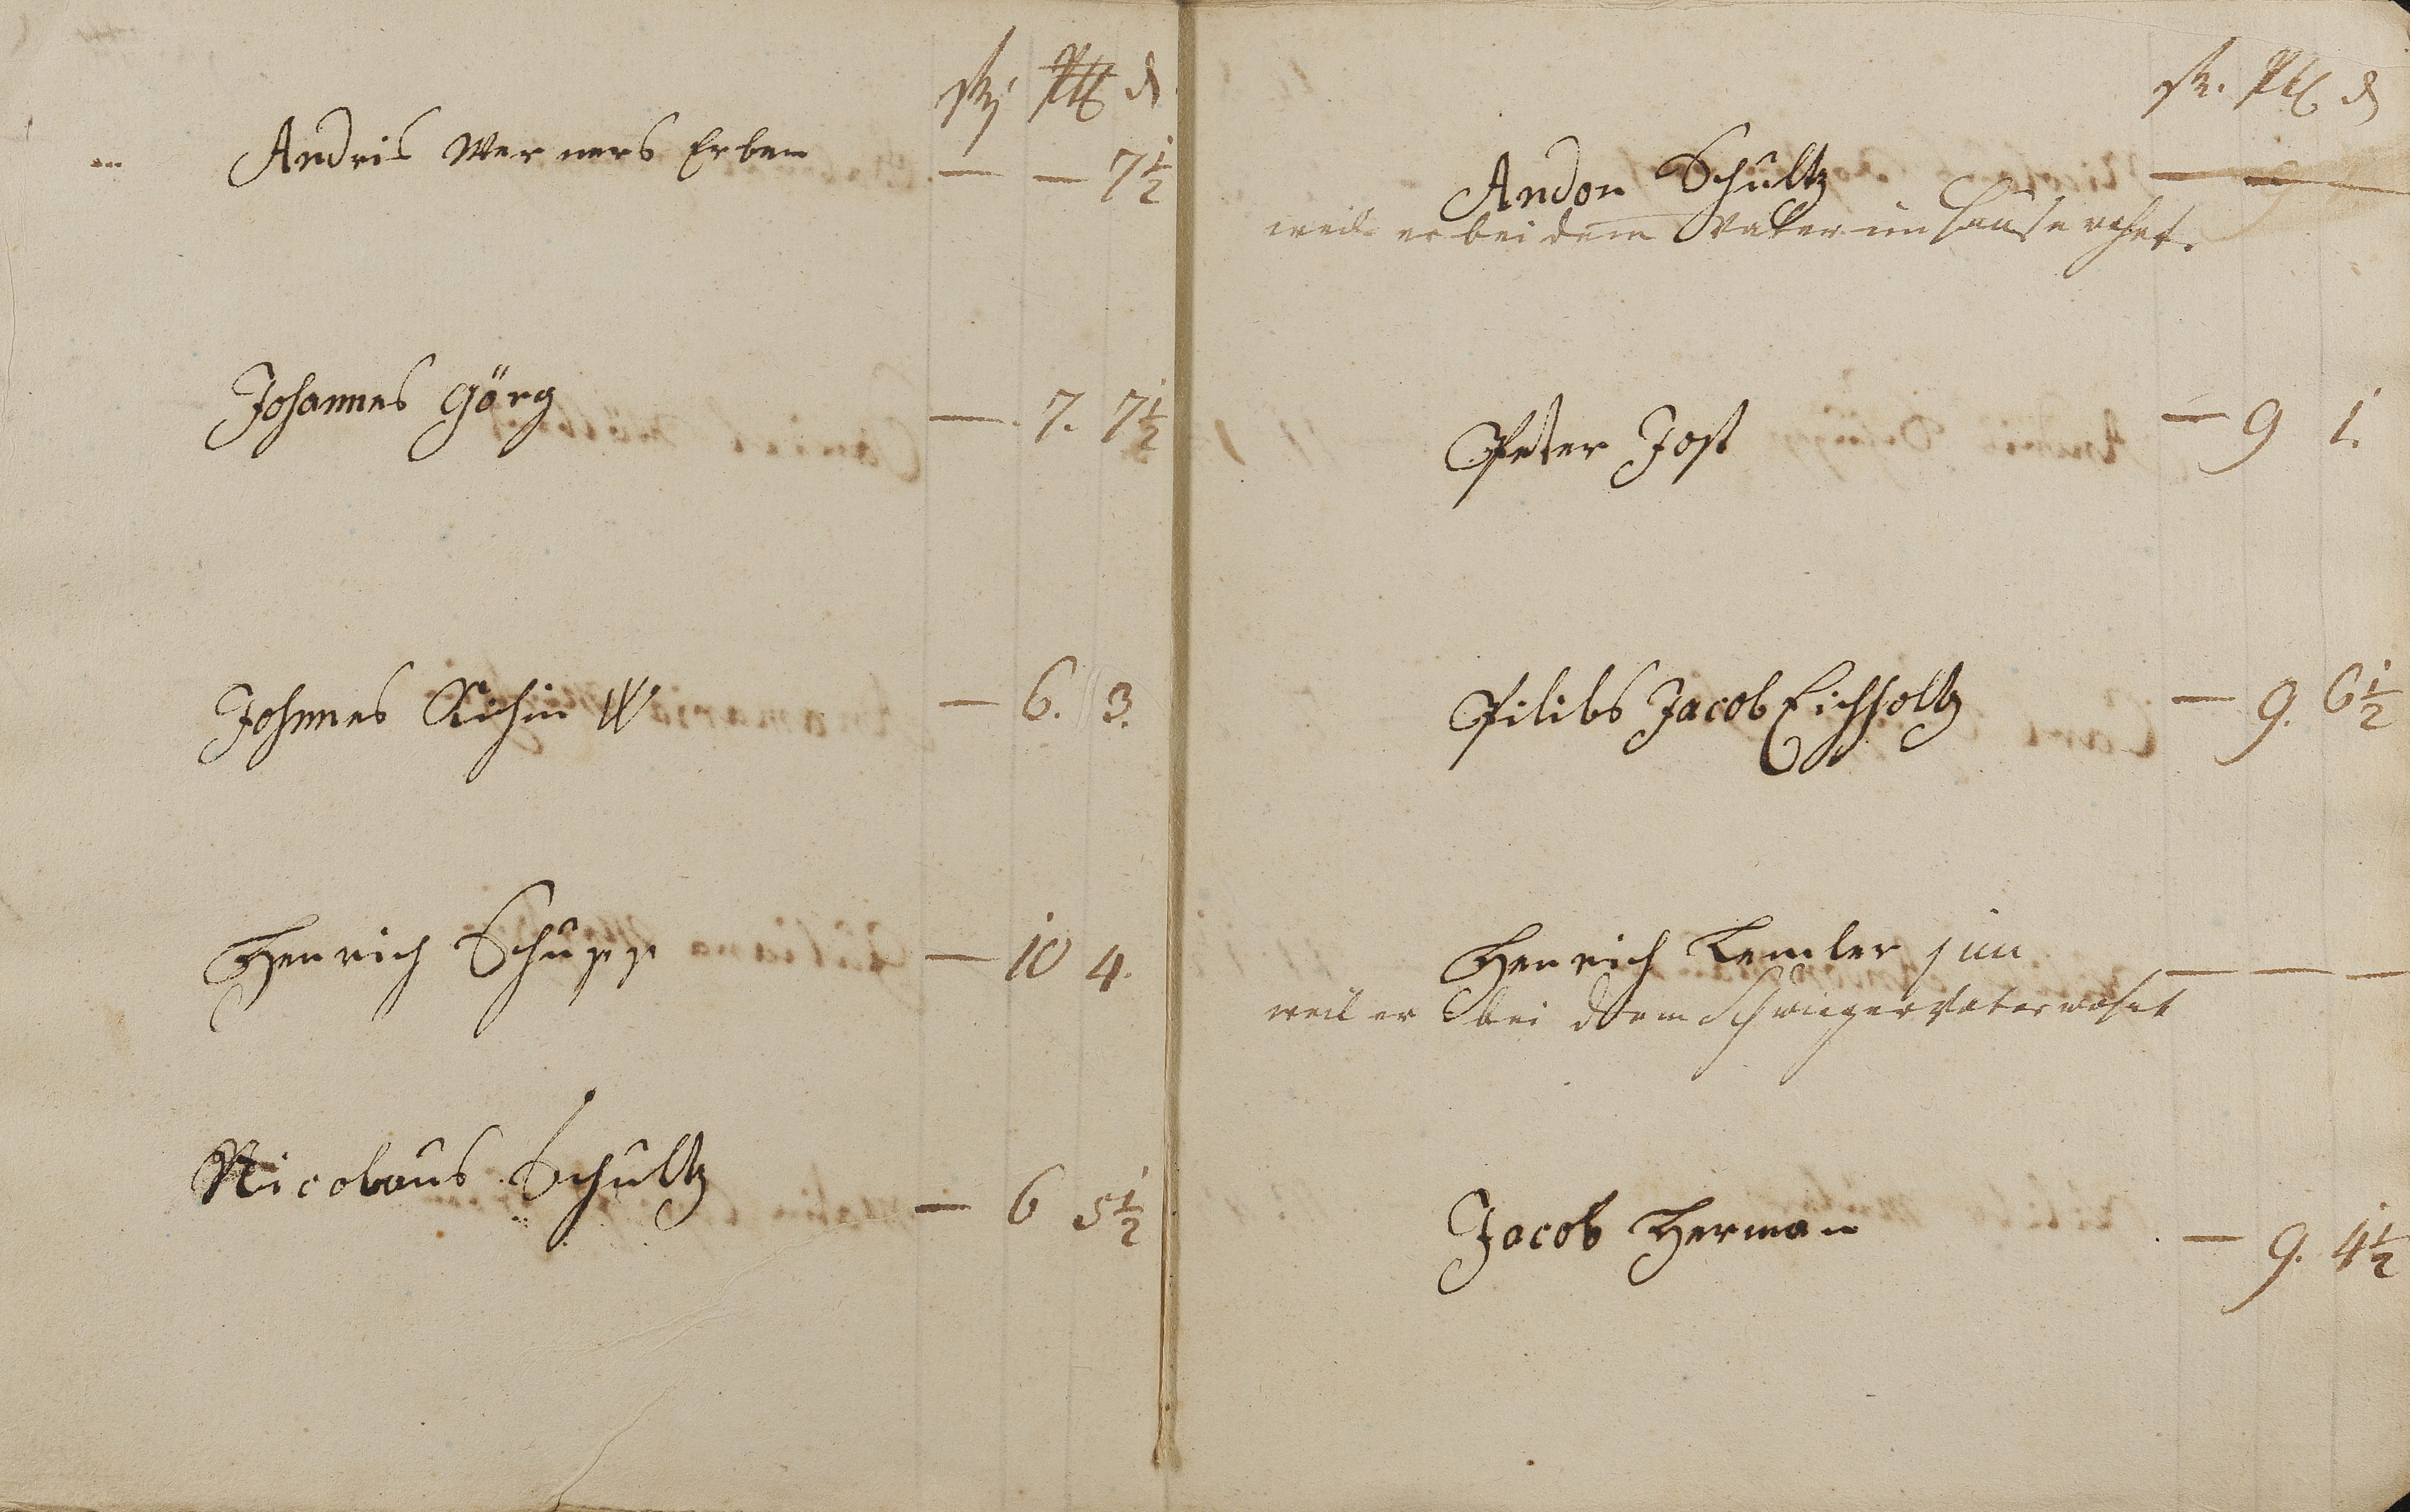 Andris Werners Erben — — 7 1/2
Johannes Görg — 7. 7 1/2
Johnnes — 6. 3.
Henrich Schupp — 10 4.
Nicolaus Schultz — 6 5 1/2
Andon Schultz
weil er bei dem Vatter im Hause
Peter Jost — 9 1.
Filibs Jacob Eichholtz — 9. 6 1/2
Henrich Lemler jun — — —
weil er bei dem Schwigervater wohnt
Jacob Herman — 9. 4 1/2